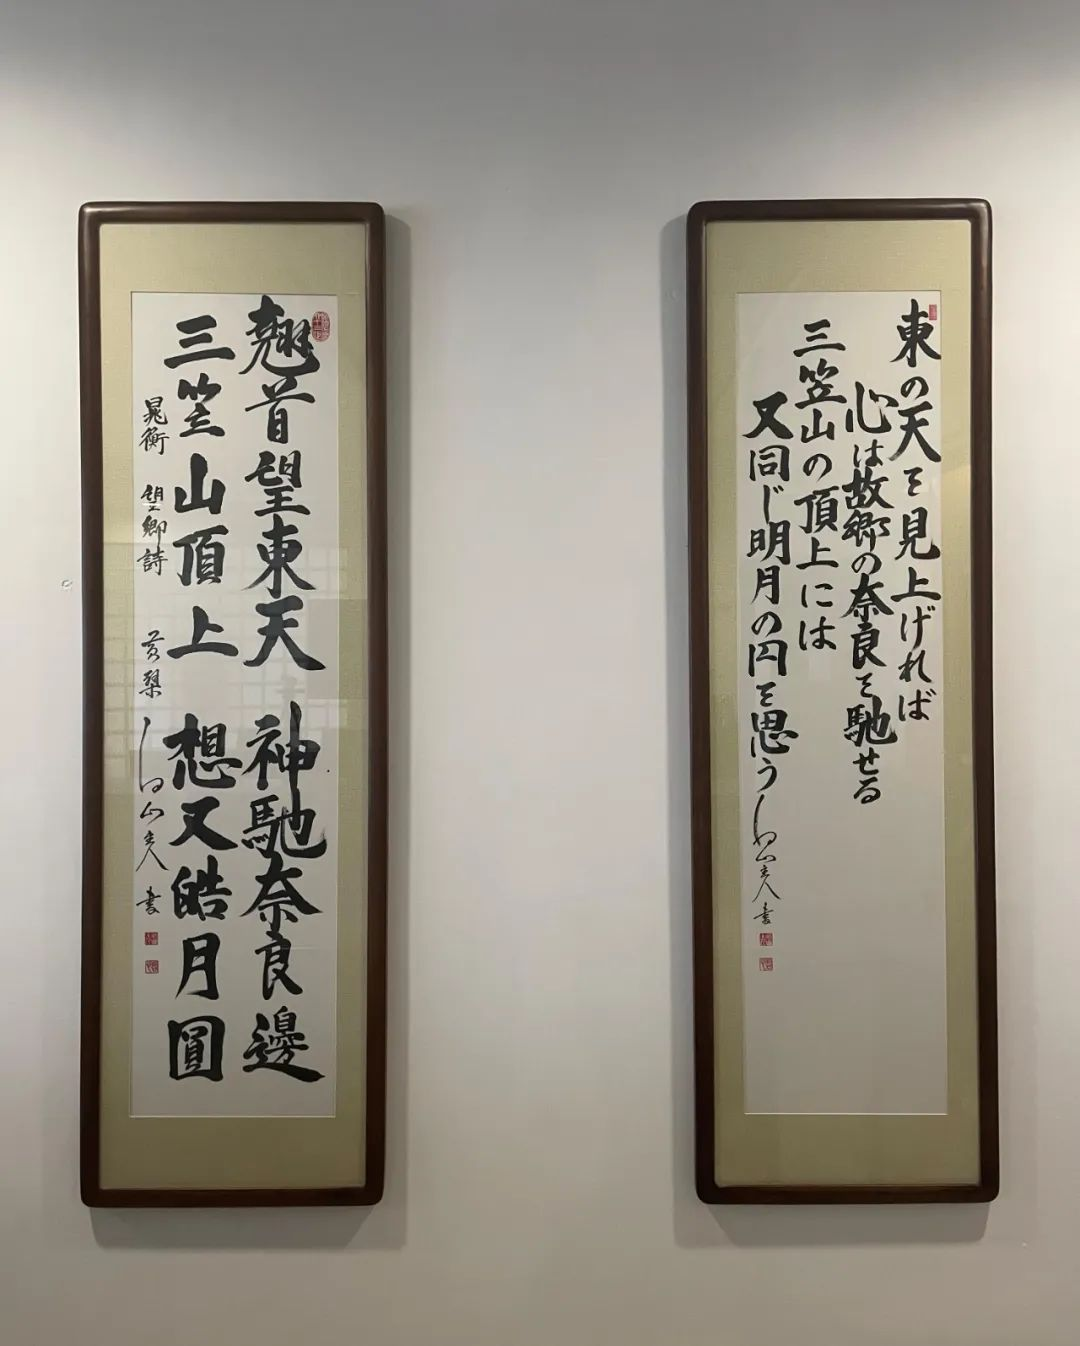 翹首望東天 神馳奈良邊
三笠山頂上 想又皓月圓
晁衡 望鄉詩 黃檗 山主人 書
東の天を見上げれば
心は故郷の奈良を馳せる
三笠山の頂上には
又同じ明月の円を思う 山主人 書